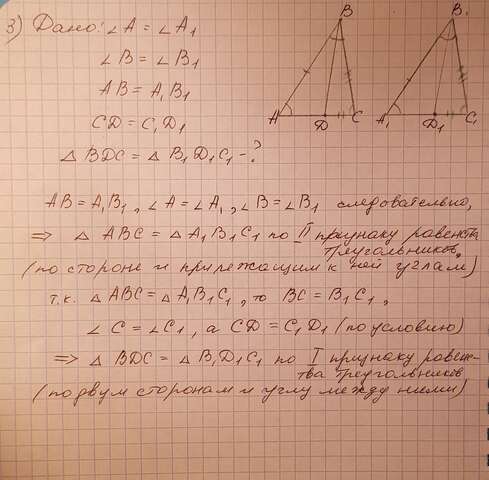 3) Дано: ∠A = ∠A₁
∠B = ∠B₁
AB = A₁B₁
CD = C₁D₁
△ BDC = △ B₁D₁C₁ - ?
B
A
D
C
B₁
A₁
D₁
C₁
AB = A₁B₁, ∠A = ∠A₁, ∠B = ∠B₁ следовательно,
⇒ △ ABC = △ A₁B₁C₁ по II признаку равенств
треугольников,
(по стороне и прилежащим к ней углам)
т.к. △ ABC = △ A₁B₁C₁, то BC = B₁C₁,
∠C = ∠C₁, а CD = C₁D₁ (по условию)
⇒ △ BDC = △ B₁D₁C₁ по I признаку равенс-
тва треугольников
(по двум сторонам и углу между ними)